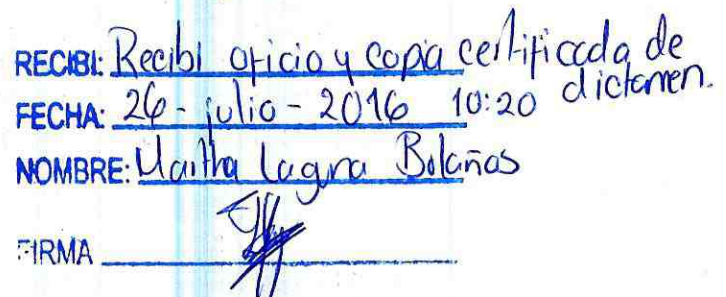 RECIBI: Recibi oficio y copia certificada de
dictamen.
FECHA: 26 - julio - 2016 10:20
NOMBRE: Martha Laguna Bolaños
FIRMA